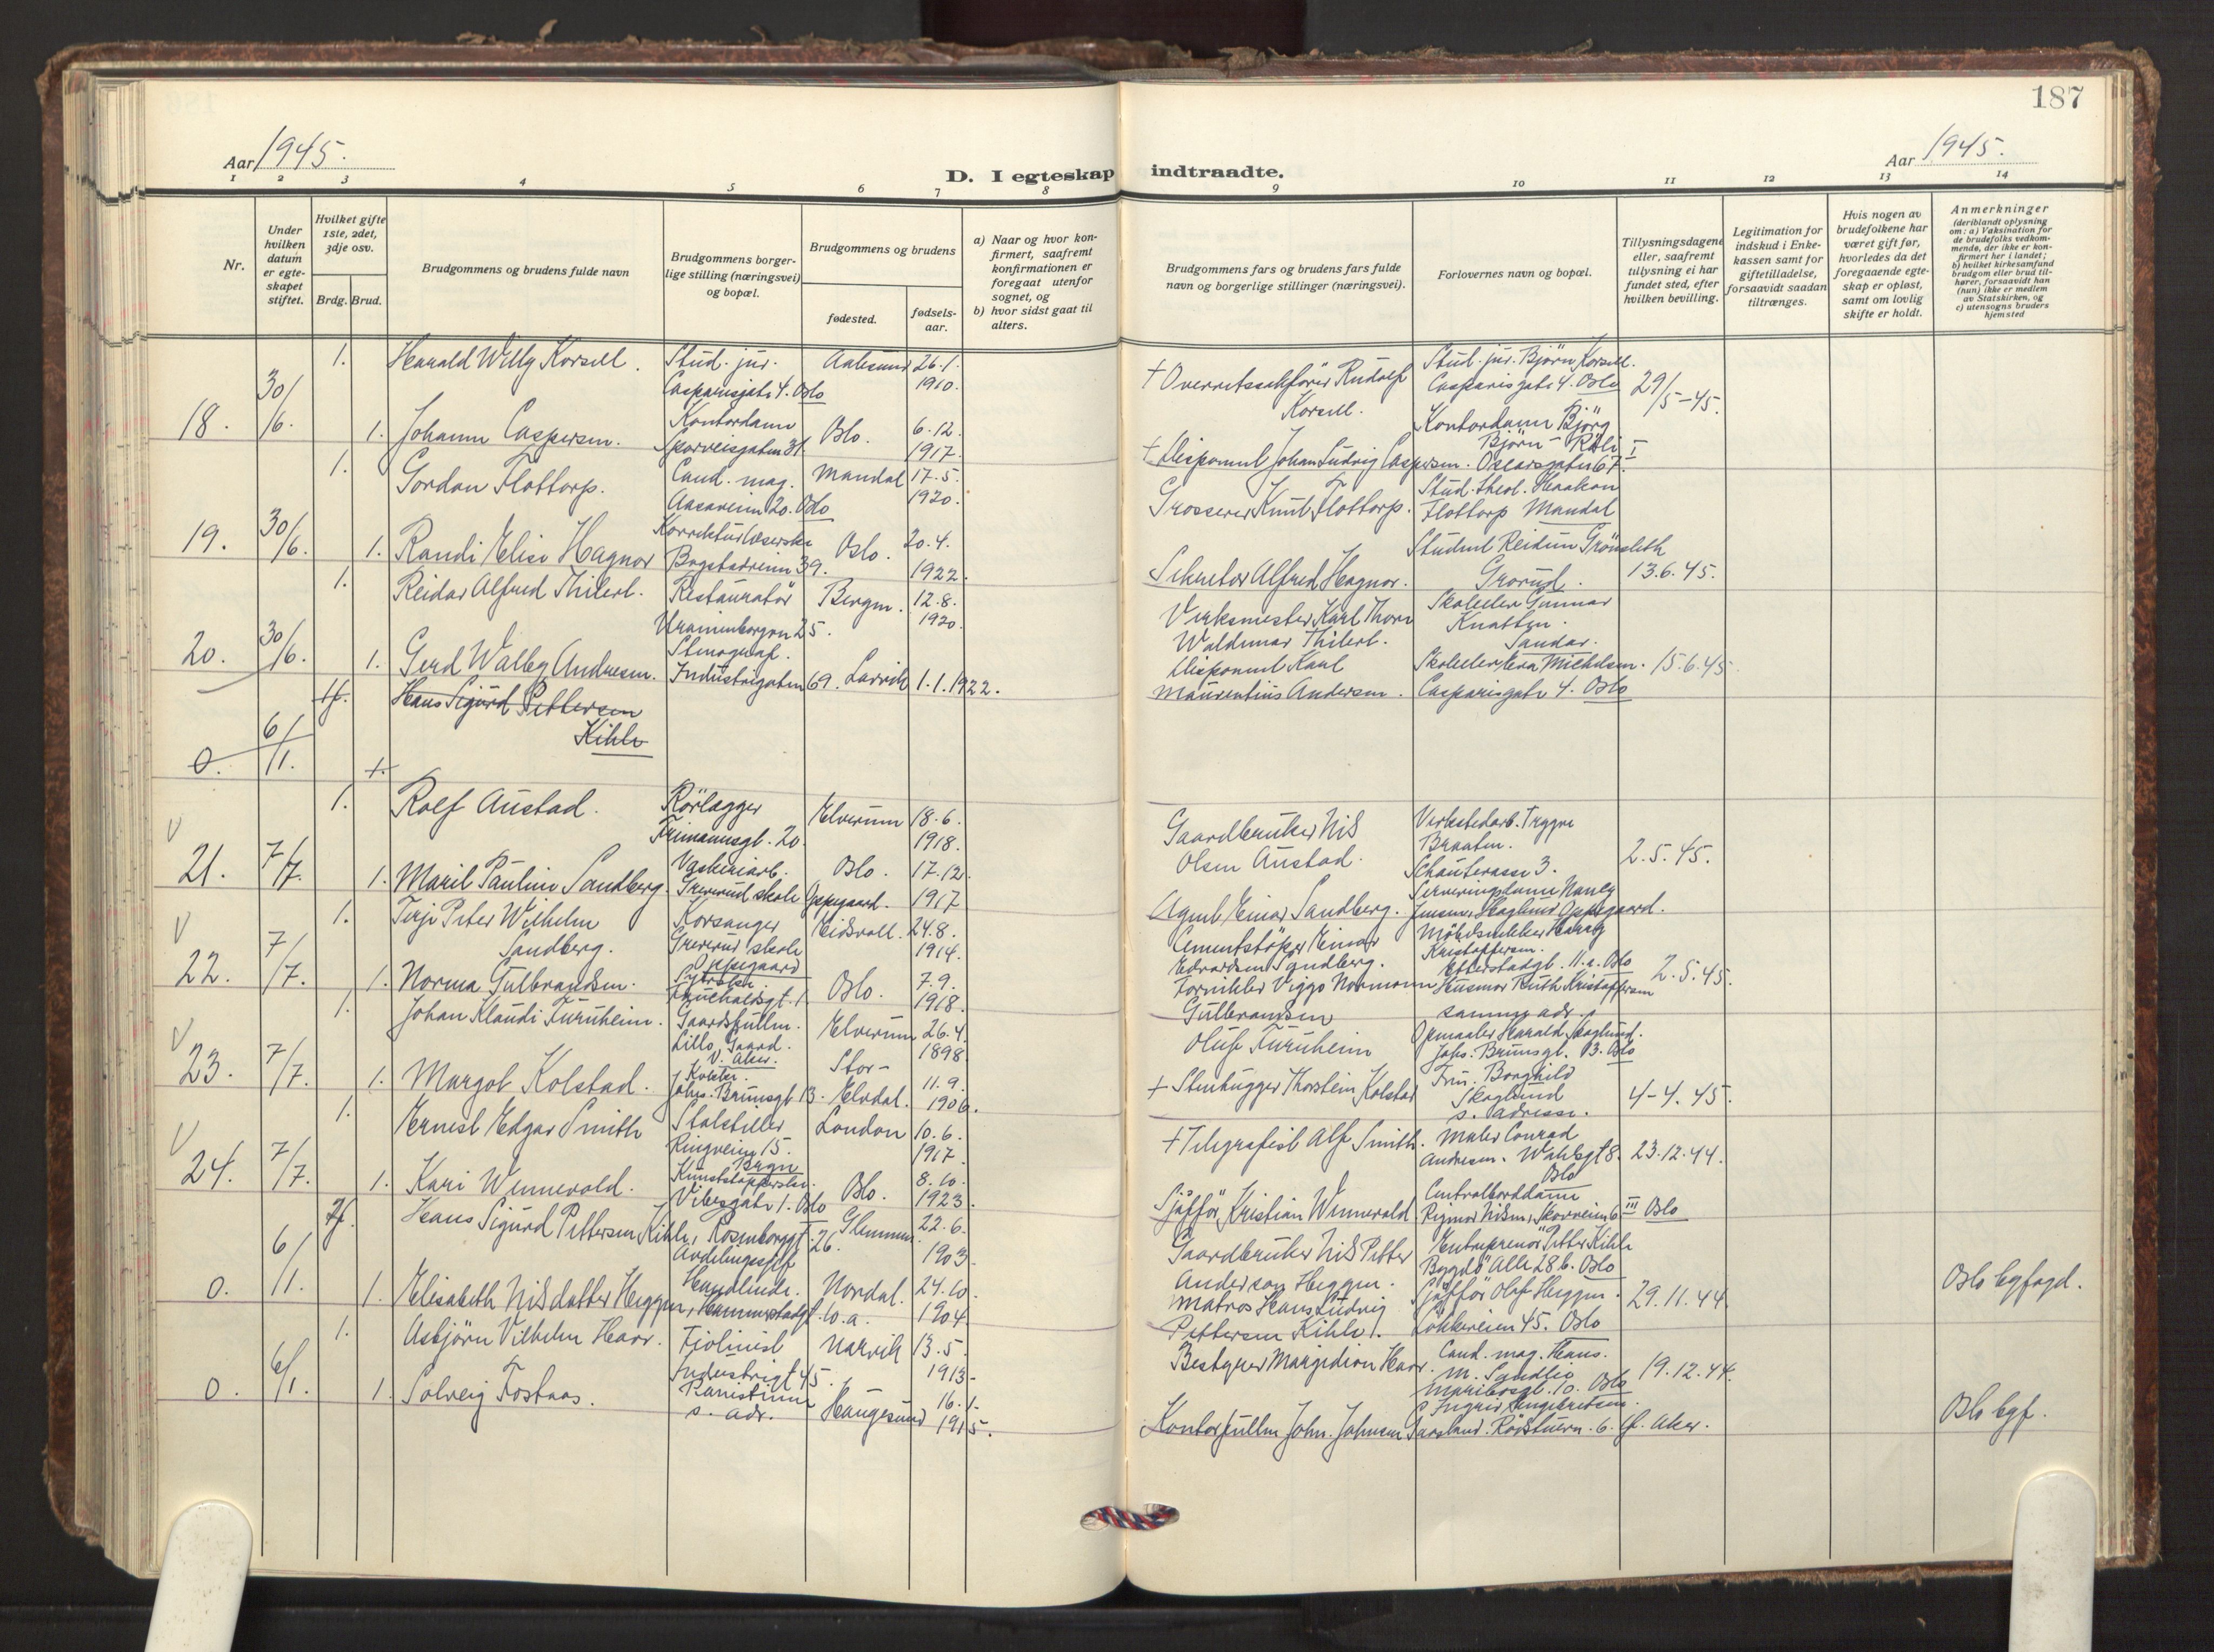 187
Aar 1945.
D. I egteskap indtraadte.
Aar 1945.
1 2 3 4 5 6 7 8 9 10 11 12 13 14
Nr.
Under hvilken datum er egteskapet stiftet.
Hvilket gifte 1ste, 2det, 3dje osv.
Brdg. Brud.
Brudgommens og brudens fulde navn
Brudgommens borgerlige stilling (næringsvei) og bopæl.
Brudgommens og brudens
fødested.
fødselsaar.
a) Naar og hvor konfirmert, saafremt konfirmationen er foregaat utenfor sognet, og
b) hvor sidst gaat til alters.
Brudgommens fars og brudens fars fulde navn og borgerlige stillinger (næringsvei).
Forlovernes navn og bopæl.
Tillysningsdagene eller, saafremt tillysning ei har fundet sted, efter hvilken bevilling.
Legitimation for indskud i Enkekassen samt for giftetilladelse, forsaavidt saadan tiltrænges.
Hvis nogen av brudefolkene har været gift før, hvorledes da det foregaaende egteskap er opløst, samt om lovlig skifte er holdt.
Anmerkninger
(deriblandt oplysning om: a) Vaksination for de brudefolks vedkommende, der ikke er konfirmert her i landet; b) hvilket kirkesamfund brudgom eller brud tilhører, forsaavidt han (hun) ikke er medlem av Statskirken, og c) utensogns bruders hjemsted
18. 30/6. 1. Harald Willy Korsell. Stud. jur. Casparisgate 4. Oslo Aalesund 26.1. 1910.
† Overretssakfører Rudolf Korsell. Stud. jur. Björn Korsell. Casparisgate 4. Oslo 29/5-45.
1. Johanne Caspersen. Kontordame Sporveisgaten 31. Oslo. 6.12. 1917.
† Disponent Johan Ludvig Caspersen. Kontordame Björg Björn- Oscarsgaten 67. I
19. 30/6. 1. Gordon Flottorp. Cand. mag. Aasaveien 20. Oslo Mandal 17.5. 1920.
Grosserer Knut Flottorp. Stud. theol. Haakon Flottorp Mandal
1. Randi Elise Hagnor Korrekturlæserske Bogstadveien 39. Oslo. 20.4. 1922.
Sekretær Alfred Hagnor. Student Reidun Grönseth Grorud. 13.6.45.
20. 30/6. 1. Reidar Alfred Thilert. Restauratör Uranienborgvn 25. Bergen. 12.8. 1920.
Verksmester Karl Thorv Waldemar Thilert. Skoleelev Gunnar Knatten. Sandar.
1. Gerd Walbg Andresen. Stenograf. Industrigaten 69. Larvik 1.1.1922.
Disponent Karl Maurentius Andersen. Skoleelev Eva Michelsen. Casparisgate 4. Oslo 15.6.45.
0. 6/1. Hans Sigurd Pettersen Kihle
1.
21. 7/7. 1. Rolf Austad. Rörlægger Frimannsgt. 20. Elverum 18.6. 1918.
Gaardbruker Nils Olsen Austad. Verkstedarb. Trygve Braaten. Schouterasse 3. 2.5.45.
1. Marit Pauline Sandberg. Vaskeriarb. Greverud skole Oppegaard. Oslo. 17.12. 1917
Agent Einar Sandberg. Serveringsdame Nancy Jensen, Haglund Oppegaard.
22. 7/7. 1. Terje Peter Wilhelm Sandberg. Korsanger Greverud skole Oppegaard Eidsvoll. 24.8. 1914.
Cementstöper Einar Edvardsen Sandberg. Möbelsnekker Harry Kristoffersen. Etterstadgt. 11.a. Oslo 2.5.45.
1. Norma Gulbrandsen. Fauchaldsgt. 1 Oslo. 7.9. 1918.
Fornikler Viggo Normann Gulbrandsen Husmor Ruth Kristoffersen samme adr.
23. 7/7. 1. Johan Klaudi Furuheim. Gaardsfullm. Lillo Gaard. V. Aker. Elverum 26.4. 1898.
Oluf Furuheim Opmaaler Harald Skoglund. Johs. Brunsgt. 13. Oslo
1. Margot Kolstad. Johs. Brunsgt 13. Stor-Elvdal. 11.9. 1906.
† Stenhugger Thorstein Kolstad Fru. Borghild Skoglund s. adresse. 4-4.45.
24. 7/7. 1. Ernest Edgar Smith Stolstiller Ringveien 15. Brgn London 10.6. 1917.
† Telegrafist Alf Smith. Maler Conrad Andresen. Wahlsgt 8. Oslo 23.12.44.
1. Kari Wennevold. Kunststopperske. Vibesgate 1. Oslo Oslo. 8.10. 1923.
Sjåfför Kristian Wennevold Centralborddame Rigmor Nilsen, Skovveien 6 III Oslo
0. 6/1. Hans Sigurd Pettersen Kihle, Rosenborggt. 26. Avdelingssjef Glemmen. 22.6. 1903.
Gaardbruker Nils Petter Anderson Heggen. Entreprenör Petter Kihle Bygdö Alle 28 b. Oslo
1. Elisabeth Nilsdatter Heggen, Handlende. Hammerstadgt. 10.a. Nordal. 24.10. 1904.
Matros Hans Ludvig Pettersen Kihle. Sjåfför Olaf Heggen. Lökkeveien 45. Oslo 29.11.44. Oslo byfogd.
0. 6/1. 1. Asbjörn Vilhelm Haar. Fiolinist Industrigt 45. Narvik 13.5. 1913.
Bestyrer Margidion Haar. Cand. mag. Hans. M. Sandlio Maribosgt. 10. Oslo 19.12.44.
1. Solveig Fostaas. Pianistinne s. adr. Haugesund 16.1. 1915.
Kontorfullm John. Johnsen Ingrid Engebretsen. Rödstuevn. 6. Ö. Aker. Oslo byf.